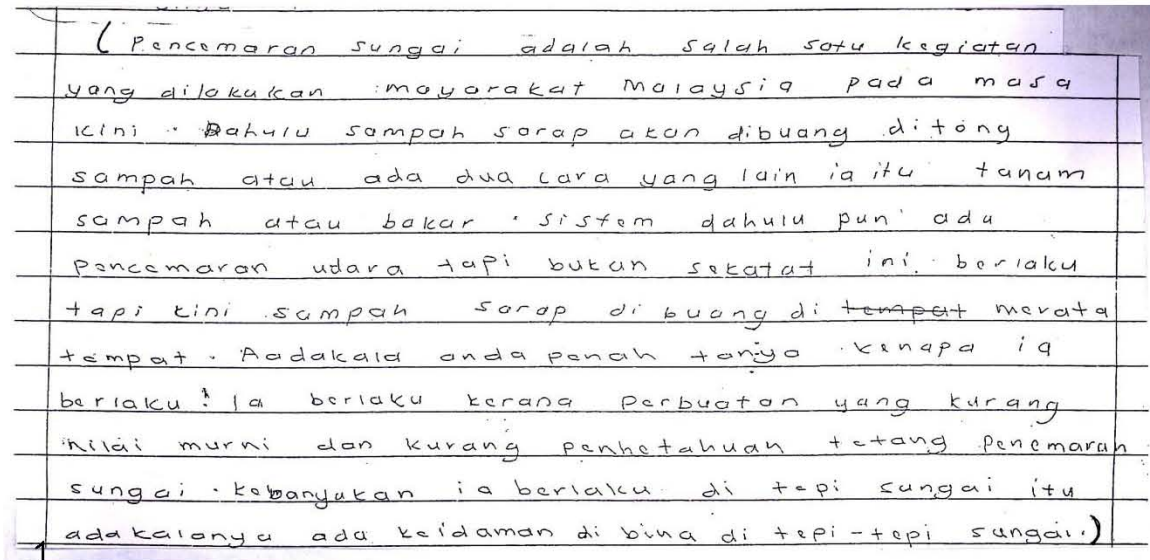 (Pencemaran sungai adalah salah satu kegiatan
yang dilakukan mayarakat Malaysia pada masa
kini. Dahulu sampah sarap akan dibuang ditong
sampah atau ada dua cara yang lain ia itu tanam
sampah atau bakar. sistem dahulu pun ada
pencemaran udara tapi bukan sekatat ini. berlaku
tapi kini sampah sarap di buang di tempat merata
tempat. Aadakala anda penah tanya kenapa ia
berlaku? Ia berlaku kerana perbuatan yang kurang
nilai murni dan kurang penhetahuan tetang penemaran
sungai. kebanyakan ia berlaku di tepi sungai itu
adakalanya ada keidaman di bina di tepi-tepi sungai.)